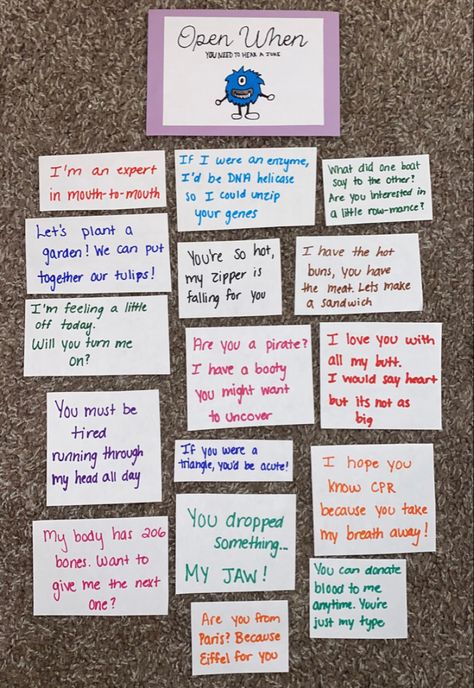 Open When
YOU NEED TO HEAR A JOKE
I'm an expert
in mouth-to-mouth
If I were an enzyme,
I'd be DNA helicase
so I could unzip
your genes
What did one boat
say to the other?
Are you interested in
a little row-mance?
Let's plant a
garden! We can put
together our tulips!
You're so hot,
my zipper is
falling for you
I have the hot
buns, you have
the meat. Lets make
a sandwich
I'm feeling a little
off today.
Will you turn me
on?
Are you a pirate?
I have a booty
you might want
to uncover
I love you with
all my butt.
I would say heart
but its not as
big
You must be
tired
running through
my head all day
If you were a
triangle, you'd be acute!
I hope you
know CPR
because you take
my breath away!
My body has 206
bones. Want to
give me the next
one?
You dropped
something...
MY JAW!
You can donate
blood to me
anytime. You're
just my type
Are you from
Paris? Because
Eiffel for you